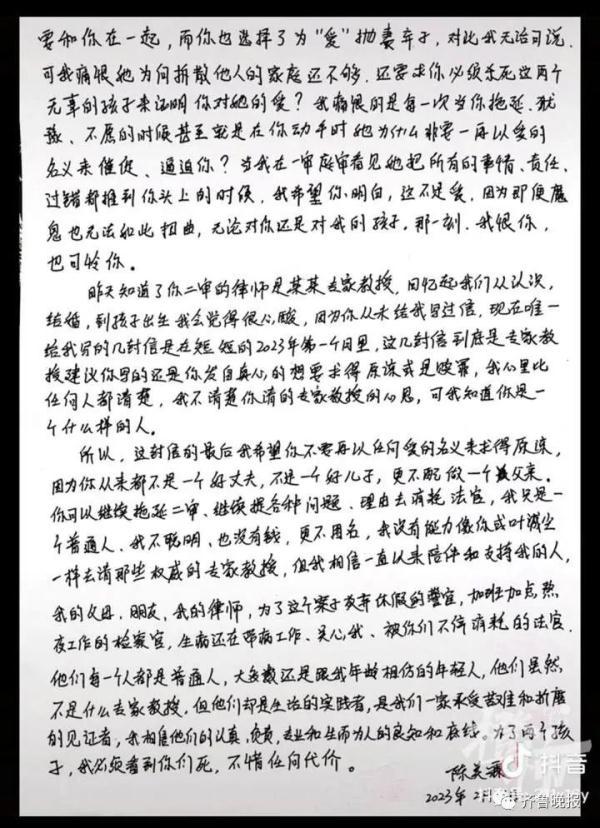 要和你在一起，而你也选择了为“爱”抛妻弃子，对此我无话可说．
可我痛恨她为何拆散他人的家庭还不够．还要求你必须杀死这两个
无辜的孩子来证明你对她的爱？我痛恨的是每一次当你拖延．犹
豫、不愿的时候甚至就是在你动手时她为什么非要一再以爱的
名义来催促、逼迫你？当我在一审庭审看见她把所有的事情、责任、
过错都推到你头上的时候，我希望你明白，这不是爱，因为即便魔
鬼也无法如此扭曲，无论对你还是对我的孩子．那一刻．我恨你，
也可怜你。
昨天知道了你二审的律师是某某专家教授，回忆起我们从认识，
结婚，到孩子出生我会觉得很心酸，因为你从未给我写过信，现在唯一
给我写的几封信是在短短的2023年第一个月里，这几封信到底是专家教
授建议你写的还是你发自真心的想要求得原谅或是赎罪，我心里比
任何人都清楚，我不清楚你请的专家教授的心思，可我知道你是一
个什么样的人。
所以，这封信的最后我希望你不要再以任何爱的名义来求得原谅，
因为你从来都不是一个好丈夫，不是一个好儿子，更不配做一个父亲。
你可以继续拖延二审、继续提各种问题、理由去消耗法官，我只是一
个普通人、我不聪明、也没有钱，更不出名，我没有能力像你或叶诚尘
一样去请那些权威的专家教授，但我相信一直以来陪伴和支持我的人，
我的父母．朋友，我的律师，为了这个案子放弃休假的警官，加班加点熬
夜工作的检察官，生病还在带病工作、关心我、被你们不停消耗的法官．
他们每一个人都是普通人，大多数还是跟我年龄相仿的年轻人，他们虽然
不是什么专家教授，但他们却是生活的实践者，是我们一家承受苦难和折磨
的见证者，我相信他们的认真，负责，专业和生而为人的良知和底线。为了两个孩
子，我必须看到你们死，不惜任何代价。
陈美霖
2023年2月
抖音
齐鲁晚报